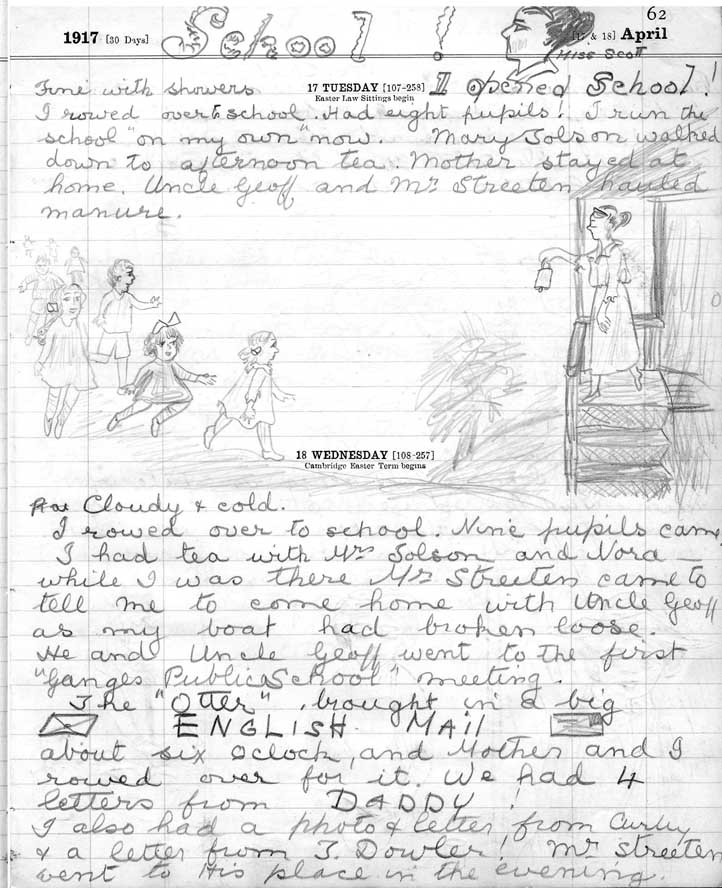 62
1917 [30 Days] School! [17 & 18] April
Miss Scott
Fine with showers 17 TUESDAY [107-258] I opened School!
Easter Law Sittings begin
I rowed over to school. Had eight pupils! I run the
school "on my own" now. Mary Tolson walked
down to afternoon tea. Mother stayed at
home. Uncle Geoff and Mr Streeten hauled
manure.
18 WEDNESDAY [108-257]
Cambridge Easter Term begins
Cloudy & cold.
I rowed over to school. Nine pupils came.
I had tea with Mrs Tolson and Nora —
while I was there Mr Streeten came to
tell me to come home with Uncle Geoff
as my boat had broken loose.
He and Uncle Geoff went to the first
"Ganges Public School" meeting.
The "Otter" brought in a big
ENGLISH MAIL
about six oclock, and Mother and I
rowed over for it. We had 4
letters from DADDY!
I also had a photo & letter from Curly
& a letter from J. Dowler! Mr Streeten
went to His place in the evening.